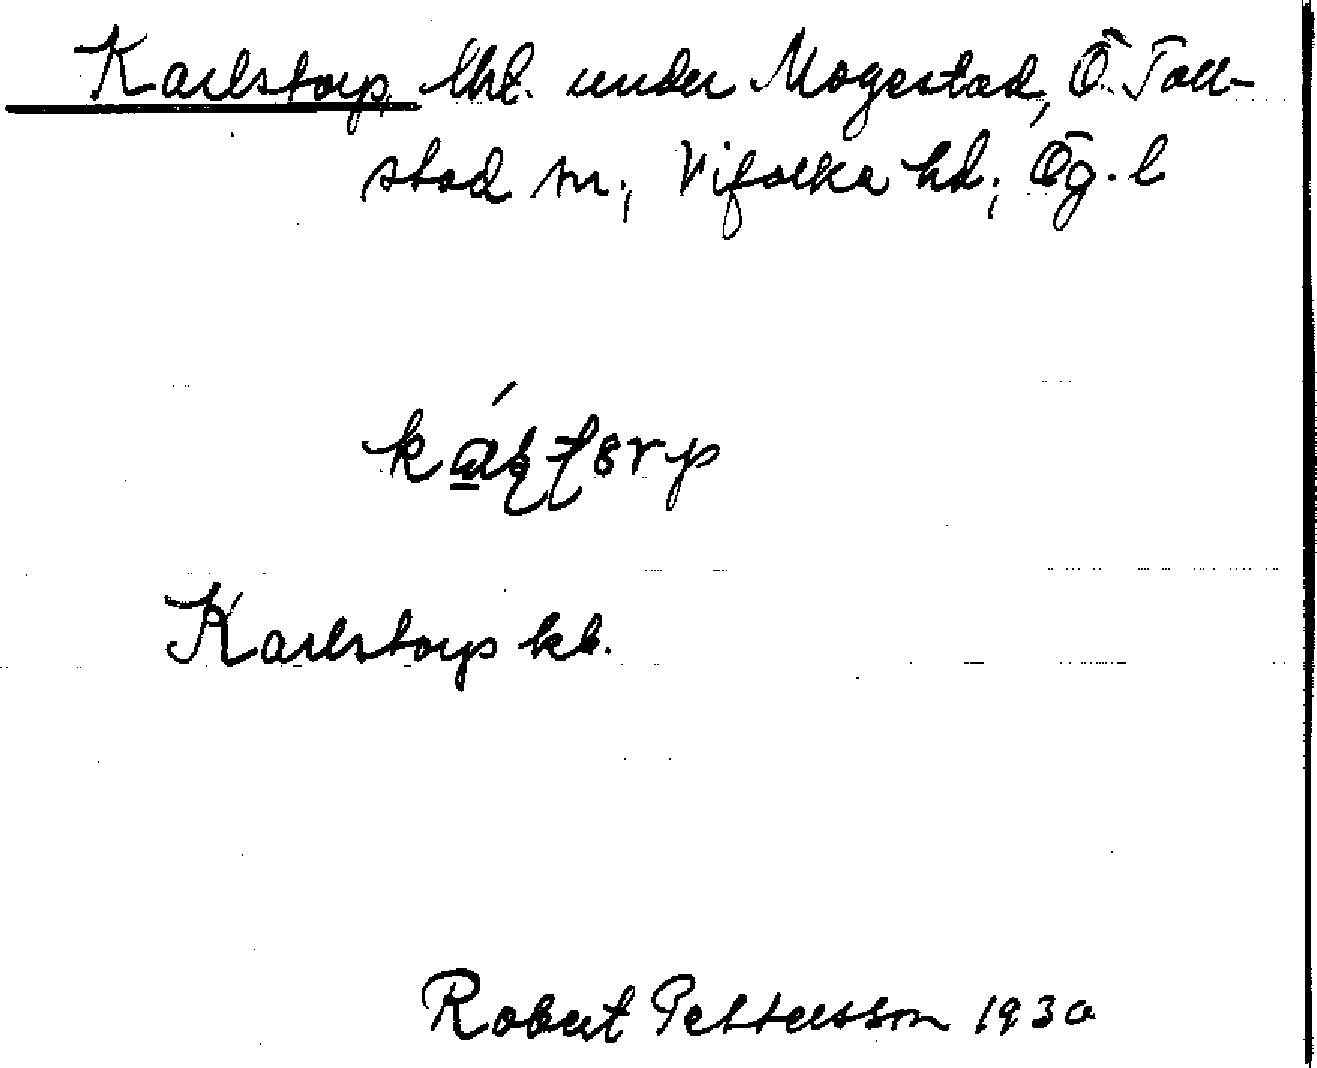 Karlstorp, lht. under Mogestad, Ö. Toll-
stad sn., Vifolka hd., Ög. l
Karlstorp kb.
Robert Pettersson 1930